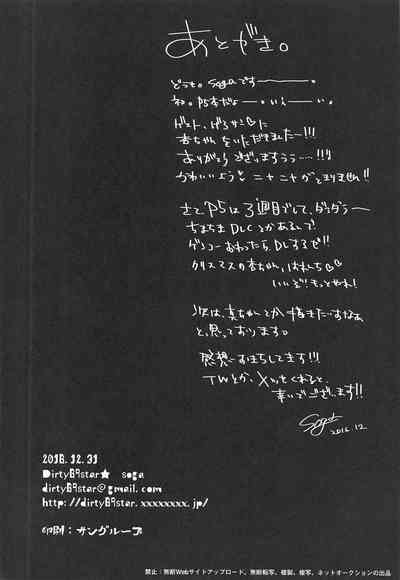 あとがき。
どうも。sogaです―――。
初。P5本だよ―。いえ―い。
ゲスト、げろサミ♡に
杏ちゃんをいただきました―!!!
ありがとうございますぅぅ....!!!
かわいいよう♡ニヤニヤがとまりません!!
さてP5は3週目でして、ダラダラ―
ちまちまDLCとかあるんで
ゲンコーおわったら、DLするぜ!!
クリスマスの杏ちゃん、はれんち♡♡
いいぞ!もっとやれ!
次は、真ちゃんとか描きたいすなぁ
と思っております。
感想おまちしてます!!!
TWとか、メールをくれると、
幸いでございます!!
Soga
2016.12
2016.12.31
Dirty69ster★ soga
dirty69ster@gmail.com
http://dirty69ster.xxxxxxxx.jp/
印刷：サングループ
禁止：無断Webサイトアップロード、無断転写、複製、複写、ネットオークションの出品